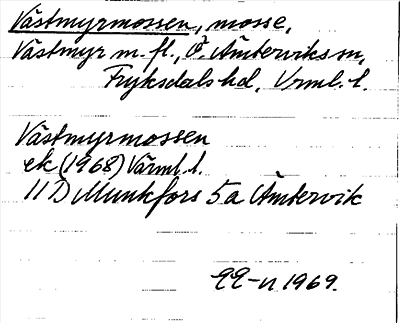 Västmyrmossen, mosse,
Västmyr m. fl., Ö. Ämterviks sn,
Fryksdals hd, Vrml. l.
Västmyrmossen
ek (1968) Värml. l.
11 D Munkfors 5a Ämtervik
1969.